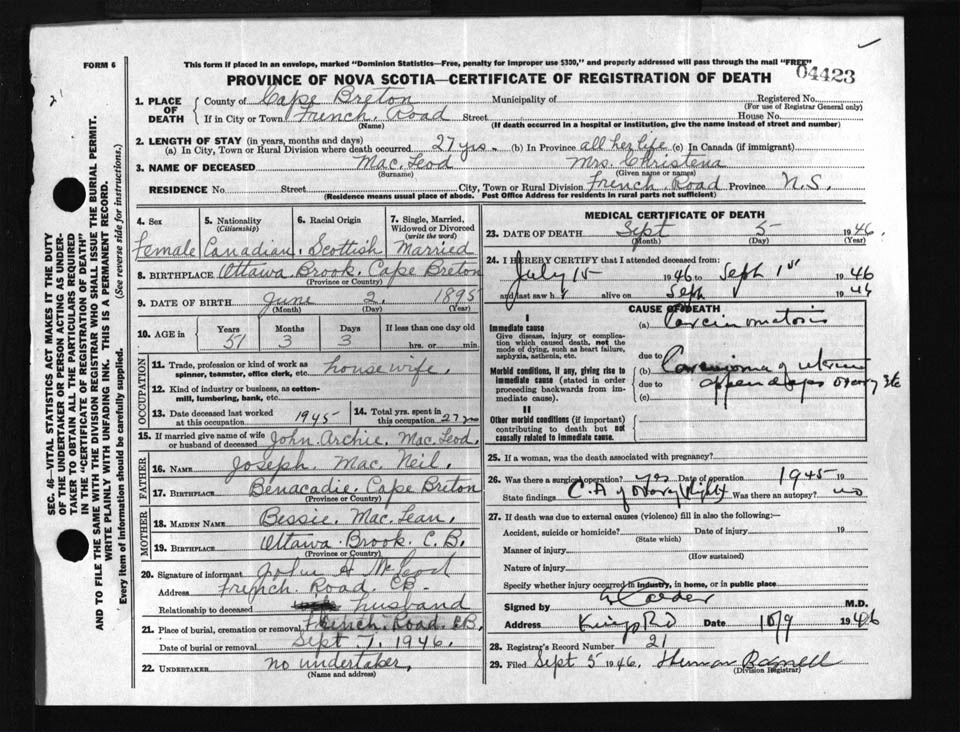 FORM 6
This form if placed in an envelope, marked "Dominion Statistics—Free, penalty for improper use $300," and properly addressed will pass through the mail "FREE"
PROVINCE OF NOVA SCOTIA—CERTIFICATE OF REGISTRATION OF DEATH
04423
1. PLACE OF DEATH
County of Cape Breton Municipality of Registered No.
(For use of Registrar General only)
If in City or Town French Road Street House No.
(Name) (If death occurred in a hospital or institution, give the name instead of street and number)
2. LENGTH OF STAY (in years, months and days)
(a) In City, Town or Rural Division where death occurred 27 yrs. (b) In Province all her life (c) In Canada (if immigrant)
3. NAME OF DECEASED Mac.Leod Mrs. Christena
(Surname) (Given name or names)
RESIDENCE No. Street City, Town or Rural Division French Road Province N.S.
(Residence means usual place of abode. Post Office Address for residents in rural parts not sufficient)
4. Sex
Female
5. Nationality
(Citizenship)
Canadian.
6. Racial Origin
Scottish
7. Single, Married, Widowed or Divorced
(write the word)
Married
8. BIRTHPLACE Ottawa Brook, Cape Breton
(Province or Country)
9. DATE OF BIRTH June 2, 1895
(Month) (Day) (Year)
10. AGE in Years Months Days If less than one day old
51 3 3 hrs. or min.
OCCUPATION
11. Trade, profession or kind of work as spinner, teamster, office clerk, etc. housewife,
12. Kind of industry or business, as cotton-mill, lumbering, bank, etc.
13. Date deceased last worked at this occupation 1945 14. Total yrs. spent in this occupation 27 yrs
15. If married give name of wife or husband of deceased John Archie Mac.Leod,
FATHER
16. NAME Joseph. Mac. Neil,
17. BIRTHPLACE Benacadie, Cape Breton
(Province or Country)
MOTHER
18. MAIDEN NAME Bessie. Mac.Lean,
19. BIRTHPLACE Ottawa Brook, C.B.
(Province or Country)
20. Signature of informant John A McLeod
Address French Road. CB-
Relationship to deceased husband
21. Place of burial, cremation or removal French Road, CB.
Date of burial or removal Sept 7, 1946.
22. UNDERTAKER no undertaker,
(Name and address)
MEDICAL CERTIFICATE OF DEATH
23. DATE OF DEATH Sept 5 1946.
(Month) (Day) (Year)
24. I HEREBY CERTIFY that I attended deceased from:
July 15 1946 to Sept 1st 1946
and last saw h alive on Sept 1946
CAUSE OF DEATH
I
Immediate cause
Give disease, injury or complication which caused death, not the mode of dying, such as heart failure, asphyxia, asthenia, etc.
(a) Carcinomatosis
due to
Morbid conditions, if any, giving rise to immediate cause (stated in order proceeding backwards from immediate cause).
(b) Carcinoma of uterine
due to appendages ovary etc
(c)
II
Other morbid conditions (if important) contributing to death but not causally related to immediate cause.
25. If a woman, was the death associated with pregnancy?
26. Was there a surgical operation? yes Date of operation 1945 19
State findings C.A of Ovary Right Was there an autopsy? no
27. If death was due to external causes (violence) fill in also the following:—
Accident, suicide or homicide? Date of injury 19
(State which)
Manner of injury
(How sustained)
Nature of injury
Specify whether injury occurred in industry, in home, or in public place
Signed by M.D.
Address Kings Rd Date 10/9 1946
28. Registrar's Record Number 21
29. Filed Sept 5 1946. Sherman Bagnell
(Division Registrar)
SEC. 46—VITAL STATISTICS ACT MAKES IT THE DUTY
OF THE UNDERTAKER OR PERSON ACTING AS UNDER-
TAKER TO OBTAIN ALL THE PARTICULARS REQUIRED
IN THE "CERTIFICATE OF REGISTRATION OF DEATH"
AND TO FILE THE SAME WITH THE DIVISION REGISTRAR WHO SHALL ISSUE THE BURIAL PERMIT.
WRITE PLAINLY WITH UNFADING INK. THIS IS A PERMANENT RECORD.
Every item of information should be carefully supplied. (See reverse side for instructions.)